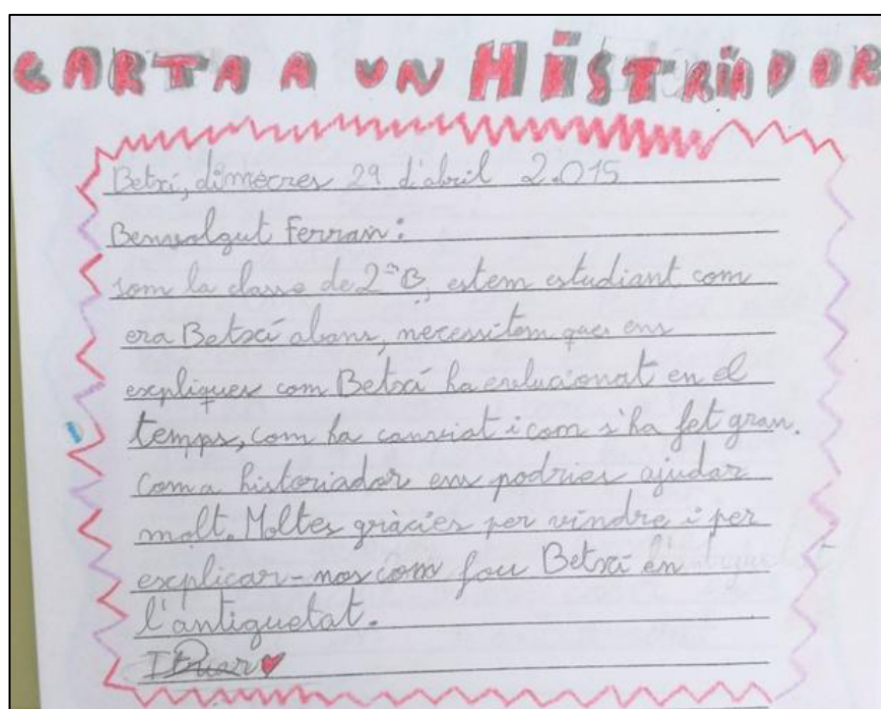 CARTA A UN HiSTRiADOR
Betxí, dimecres 29 d'abril 2.015
Benvolgut Ferran:
som la classe de 2ⁿ B, estem estudiant com
era Betxí abans, necessitem que ens
expliques com Betxí ha evolucionat en el
temps, com ha canviat i com s'ha fet gran.
Com a historiador ens podries ajudar
molt. Moltes gràcies per vindre i per
explicar-nos com fou Betxí en
l'antiguetat.